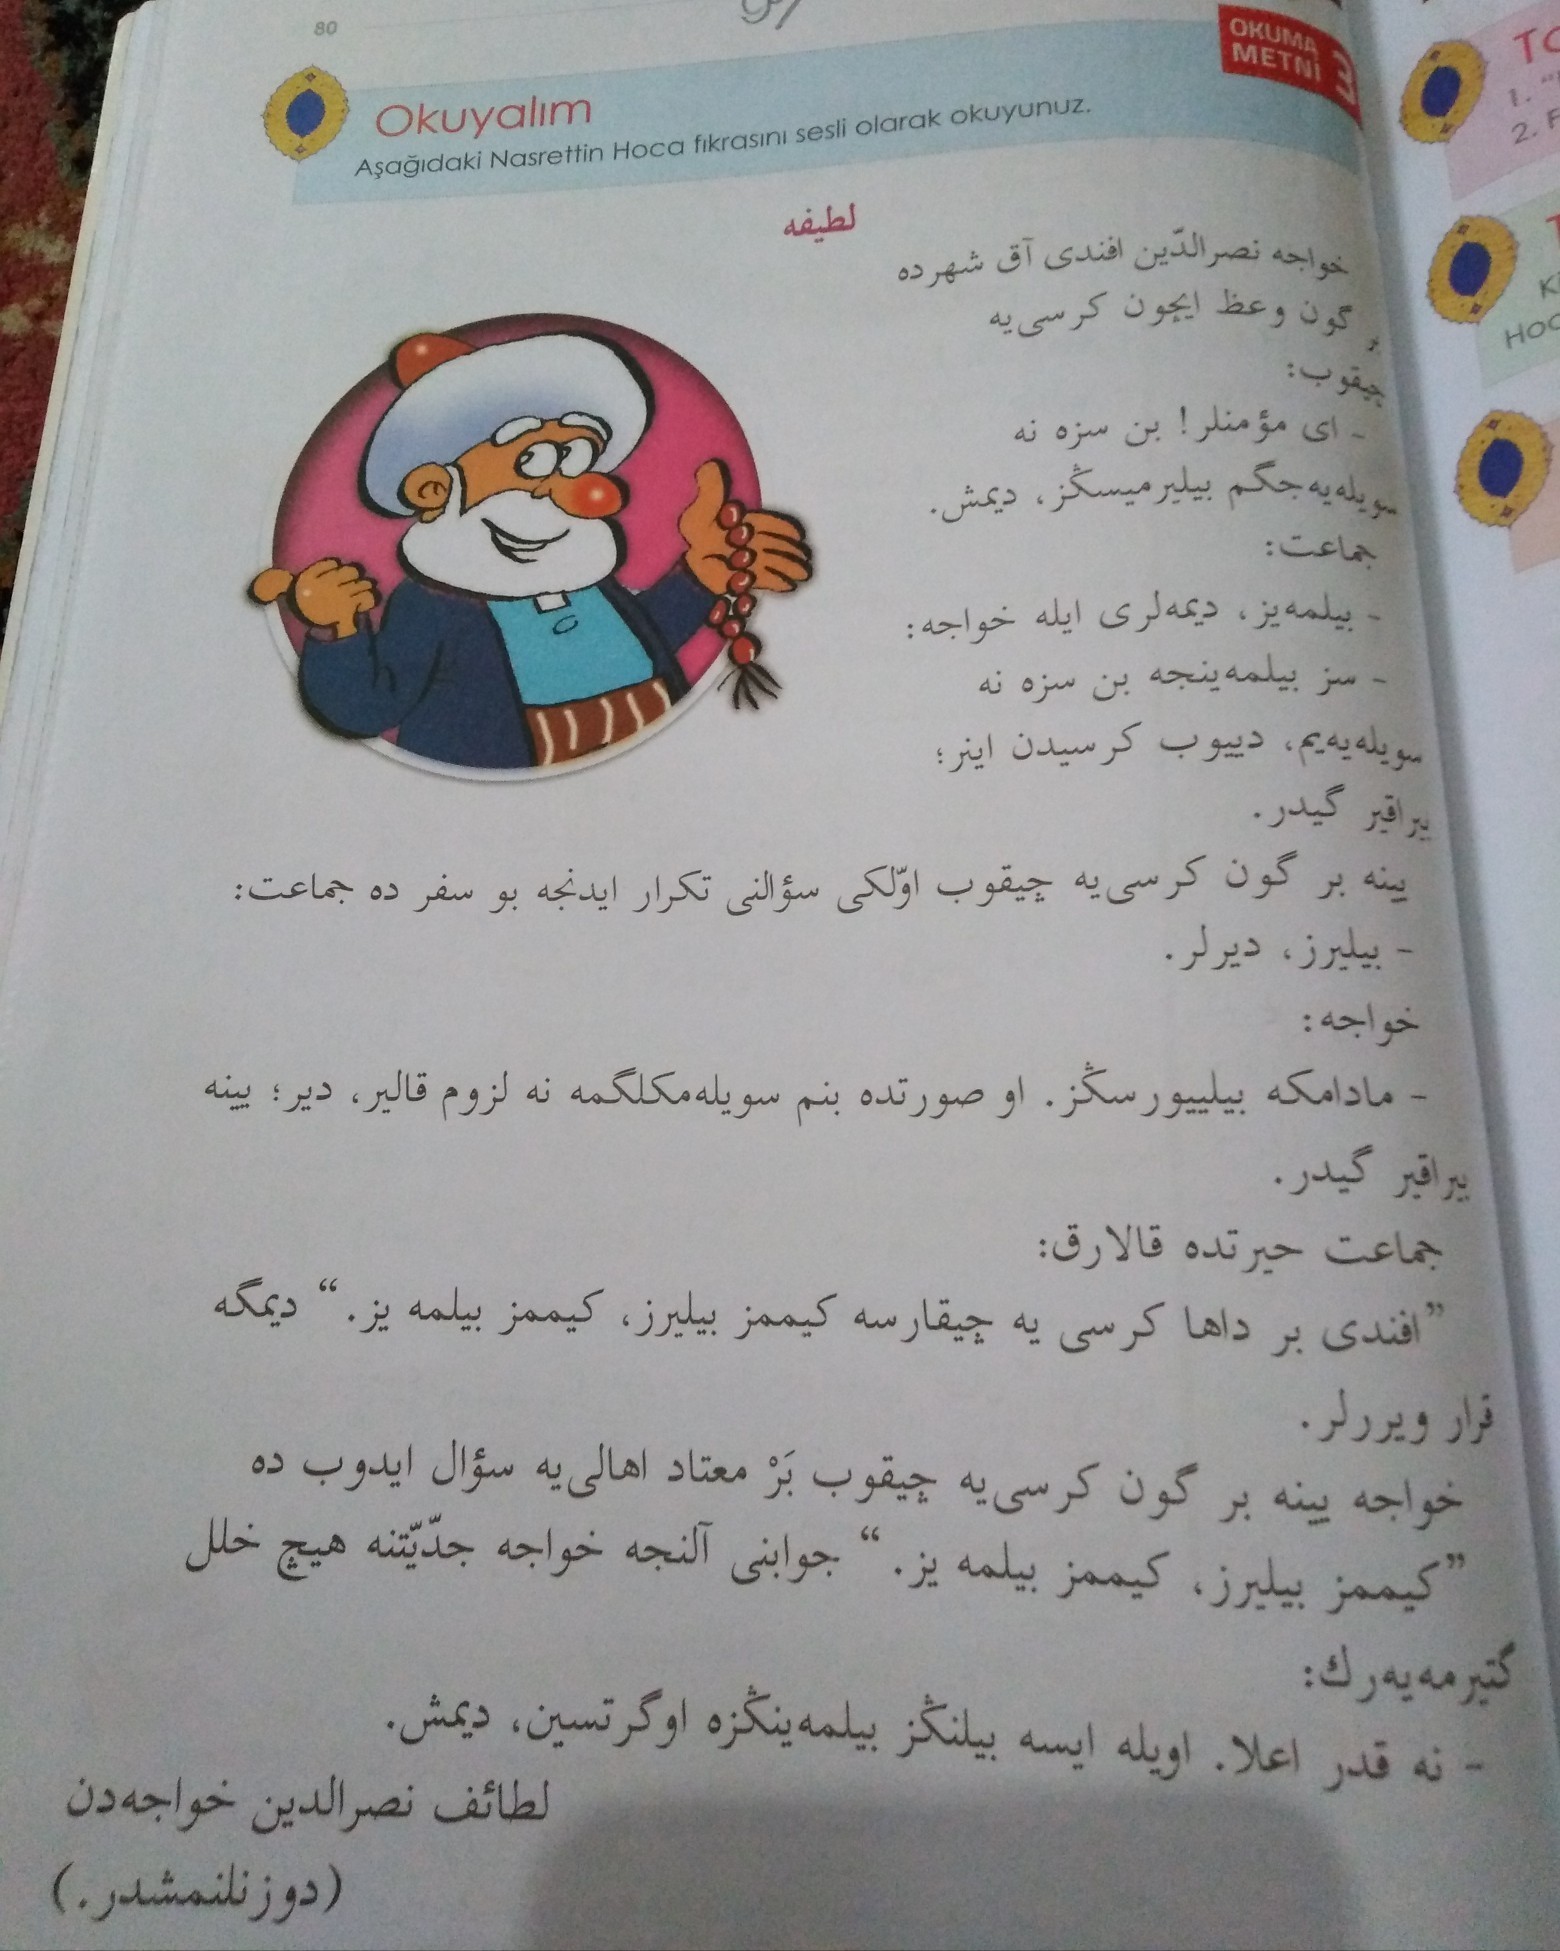 80
OKUMA
METNİ
3
Okuyalım
Aşağıdaki Nasrettin Hoca fıkrasını sesli olarak okuyunuz.
لطيفه
خواجه نصرالدّين افندى آق شهرده
بر گون وعظ ايچون كرسى‌يه
چيقوب:
- اى مؤمنلر! بن سزه نه
سويله‌يه‌جگم بيليرميسڭز، ديمش.
جماعت:
- بيلمه‌يز، ديمه‌لرى ايله خواجه:
- سز بيلمه‌ينجه بن سزه نه
سويله‌يه‌يم، دييوب كرسيدن اينر؛
بيراقير گيدر.
يينه بر گون كرسى‌يه چيقوب اوّلكى سؤالنى تكرار ايدنجه بو سفر ده جماعت:
- بيليرز، ديرلر.
خواجه:
- مادامكه بيلييورسڭز. او صورتده بنم سويله‌مكلگمه نه لزوم قالير، دير؛ يينه
بيراقير گيدر.
جماعت حيرتده قالارق:
”افندى بر داها كرسى يه چيقارسه كيممز بيليرز، كيممز بيلمه يز.“ ديمگه
قرار ويررلر.
خواجه يينه بر گون كرسى‌يه چيقوب بَرْ معتاد اهالى‌يه سؤال ايدوب ده
”كيممز بيليرز، كيممز بيلمه يز.“ جوابنى آلنجه خواجه جدّيّتنه هيچ خلل
گتيرمه‌يه‌رك:
- نه قدر اعلا. اويله ايسه بيلنڭز بيلمه‌ينڭزه اوگرتسين، ديمش.
لطائف نصرالدين خواجه‌دن
(دوزنلنمشدر.)
1.
2. F
HOC